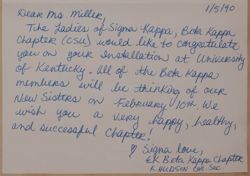 1/5/90
Dear Ms. Miller,
The Ladies of Sigma Kappa, Beta Kappa
Chapter (CSU) would like to congratulate
you on your installation at University
of Kentucky. All of the Beta Kappa
members will be thinking of our
New Sisters on February 10th. We
wish you a very happy, healthy,
and successful Chapter!
♡ Sigma love,
ΣK Beta Kappa Chapter
K. HUDSON Cor. Sec